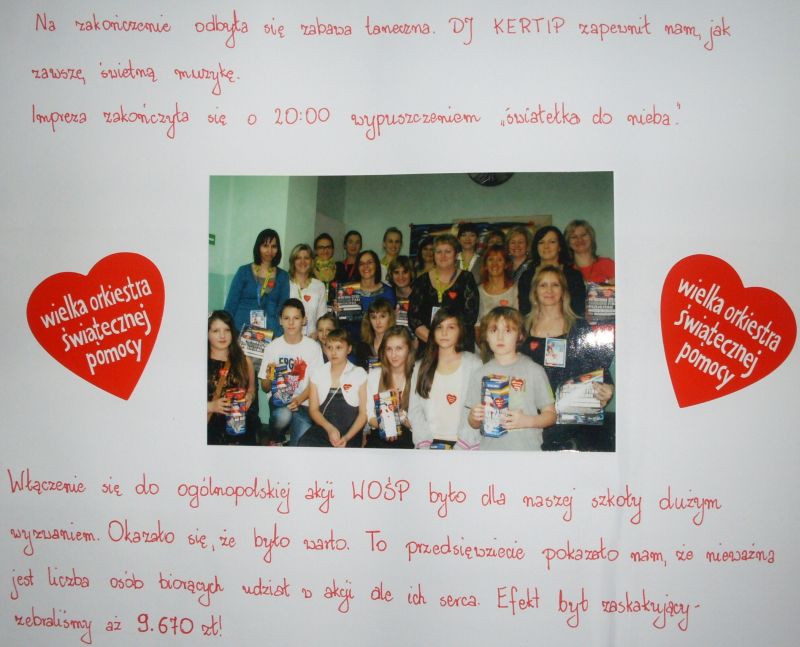 Na zakończenie odbyła się zabawa taneczna. DJ KERTIP zapewnił nam, jak
zawsze, świetną muzykę.
Impreza zakończyła się o 20:00 wypuszczeniem „światełka do nieba."
wielka orkiestra
świątecznej
pomocy
wielka orkiestra
świątecznej
pomocy
Włączenie się do ogólnopolskiej akcji WOŚP było dla naszej szkoły dużym
wyzwaniem. Okazało się, że było warto. To przedsięwzięcie pokazało nam, że nieważna
jest liczba osób biorących udział w akcji ale ich serca. Efekt był zaskakujący-
zebraliśmy aż 9.670 zł!